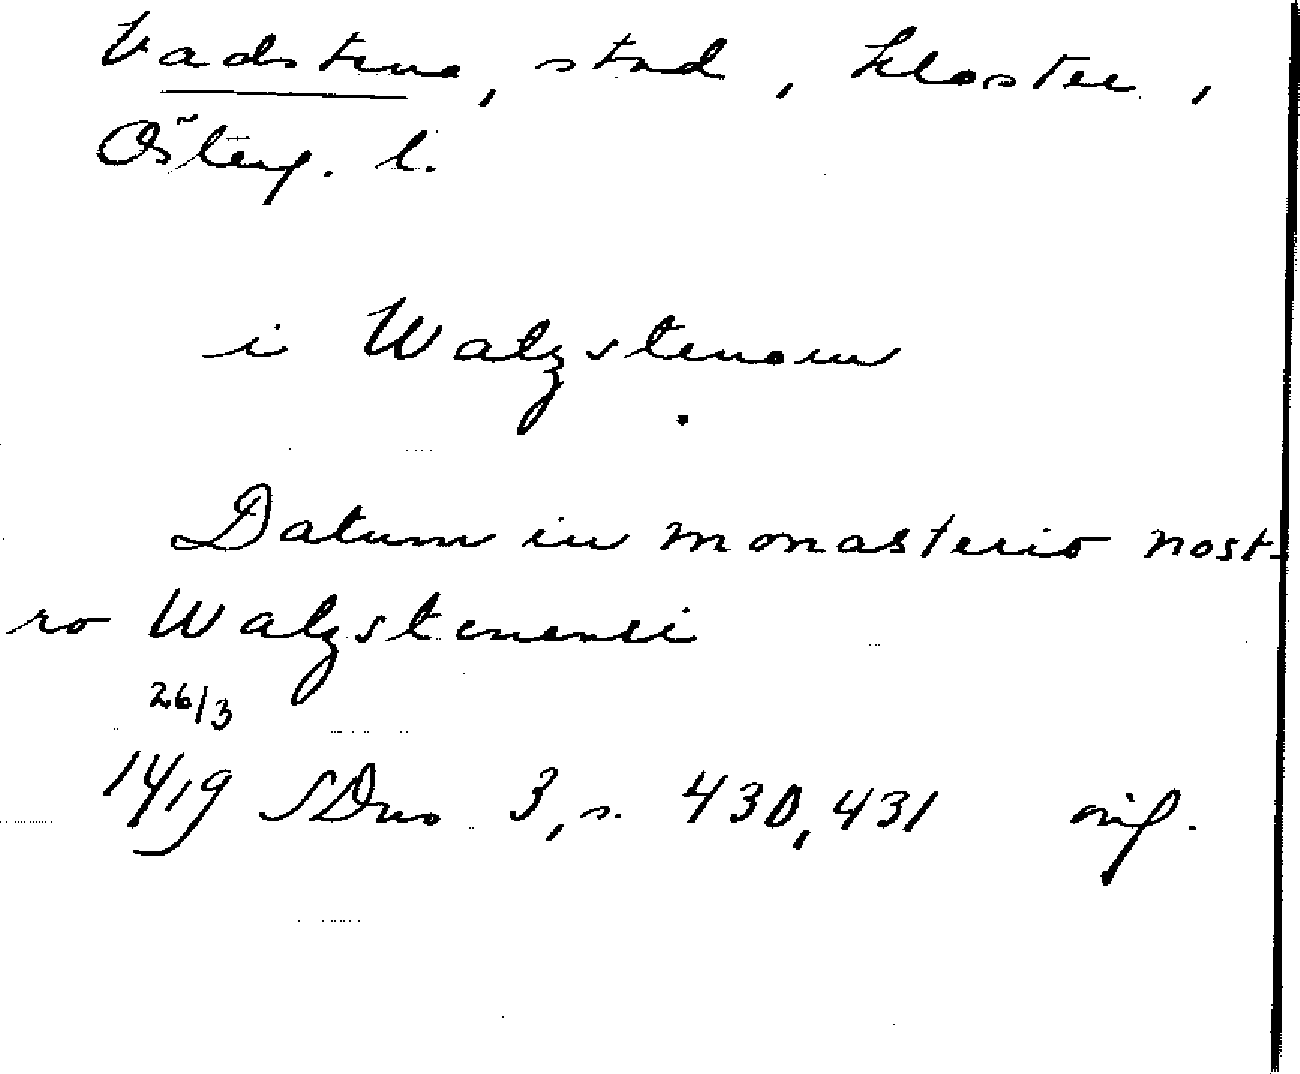 Vadstena, stad, kloster,
Österg. l.
i Walzstenom
Datum in monasterio nost-
ro Walzstenensi
26/3
1419 SDns 3, s. 430, 431 orig.